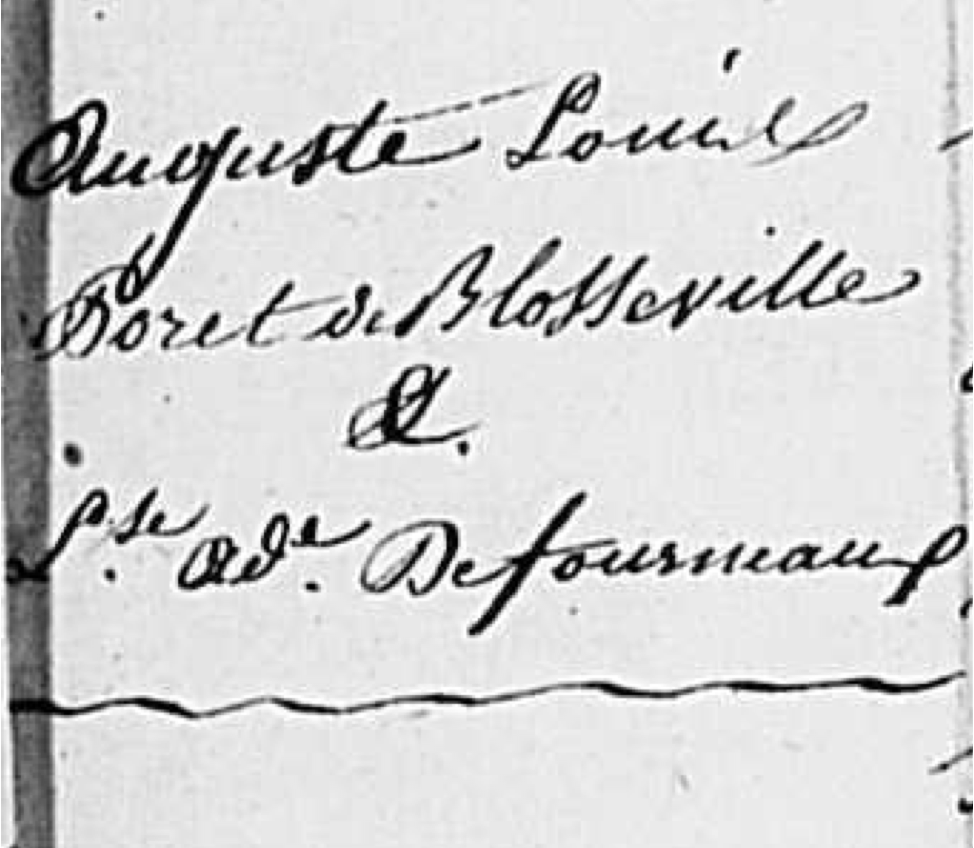 Auguste Louis
Poret de Blosseville
&.
L.se Ad.e Defourneaux